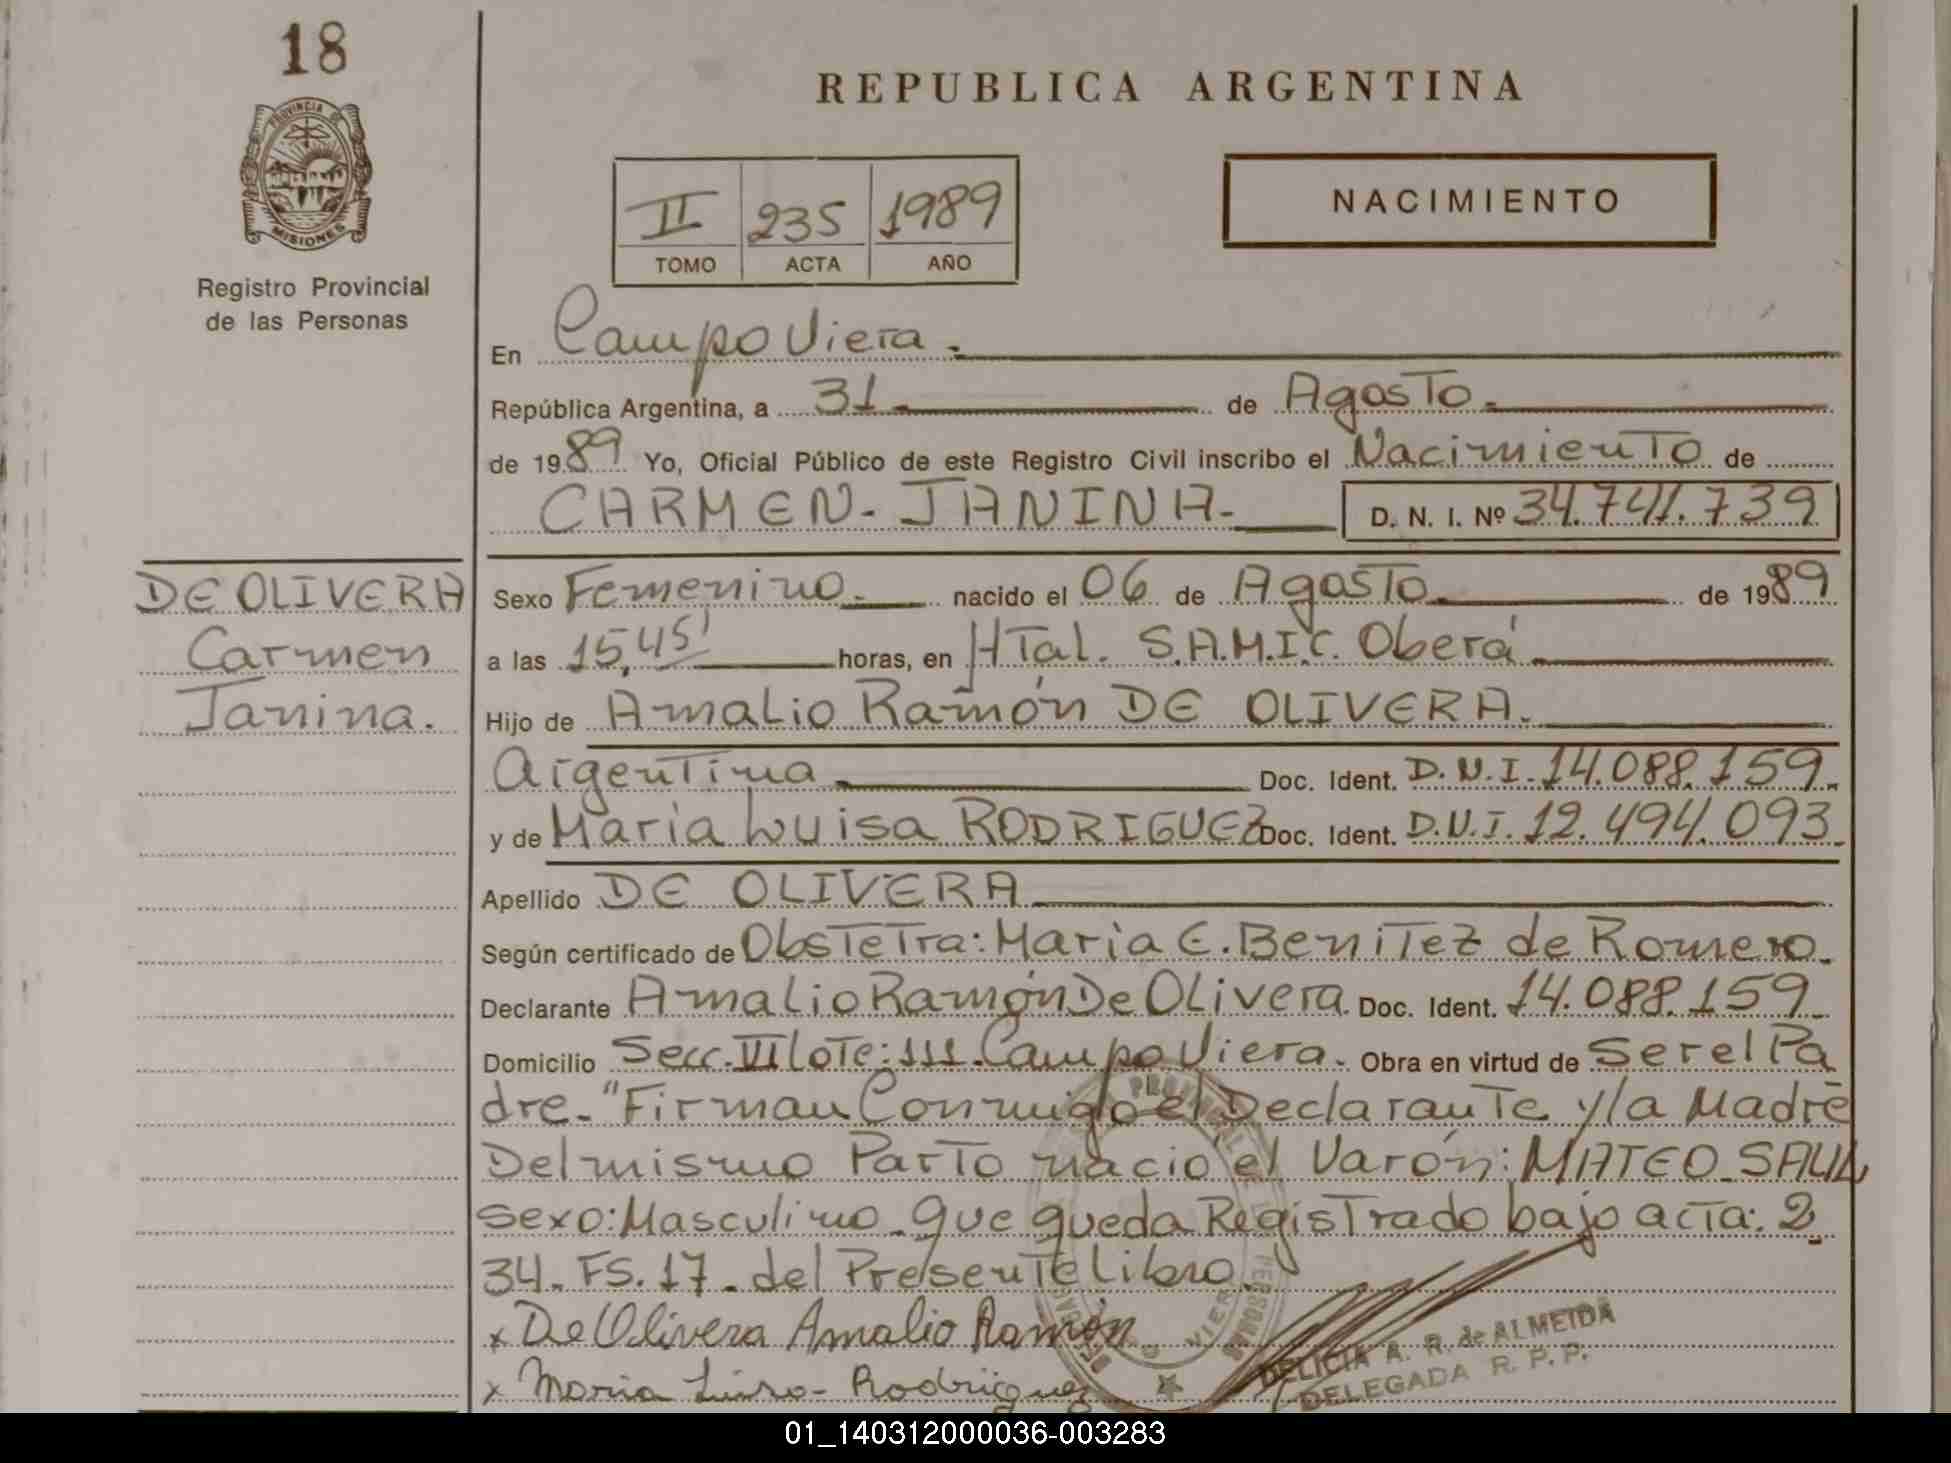 18
PROVINCIA DE
MISIONES
Registro Provincial
de las Personas
REPUBLICA ARGENTINA
II 235 1989
TOMO ACTA AÑO
NACIMIENTO
En Campo Viera.
República Argentina, a 31 de Agosto.
de 1989 Yo, Oficial Público de este Registro Civil inscribo el Nacimiento de
CARMEN-JANINA- D. N. I. Nº 34.741.739
DE OLIVERA
Carmen
Janina.
Sexo Femenino. nacido el 06 de Agosto. de 1989
a las 15,45' horas, en HTal. S.A.M.I.C. Oberá.
Hijo de Amalio Ramón DE OLIVERA.
Argentina. Doc. Ident. D.N.I. 14.088.159.
y de María Luisa RODRIGUEZ Doc. Ident. D.N.I. 12.494.093.
Apellido DE OLIVERA
Según certificado de Obstetra: Maria E. Benitez de Romero.
Declarante Amalio Ramón De Olivera Doc. Ident. 14.088.159
Domicilio Secc. VII lote: 111. Campo Viera. Obra en virtud de Ser el Pa
dre. "Firman Conmigo el Declarante y la Madre
Del mismo Parto nació el Varón: MATEO SAUL
sexo: Masculino que queda Registrado bajo acta: 2
34. FS. 17. del Presente Libro.
x De Olivera Amalio Ramón
x Maria Luisa - Rodriguez
DELICIA A. R. de ALMEIDA
DELEGADA R. P. P.
01_140312000036-003283